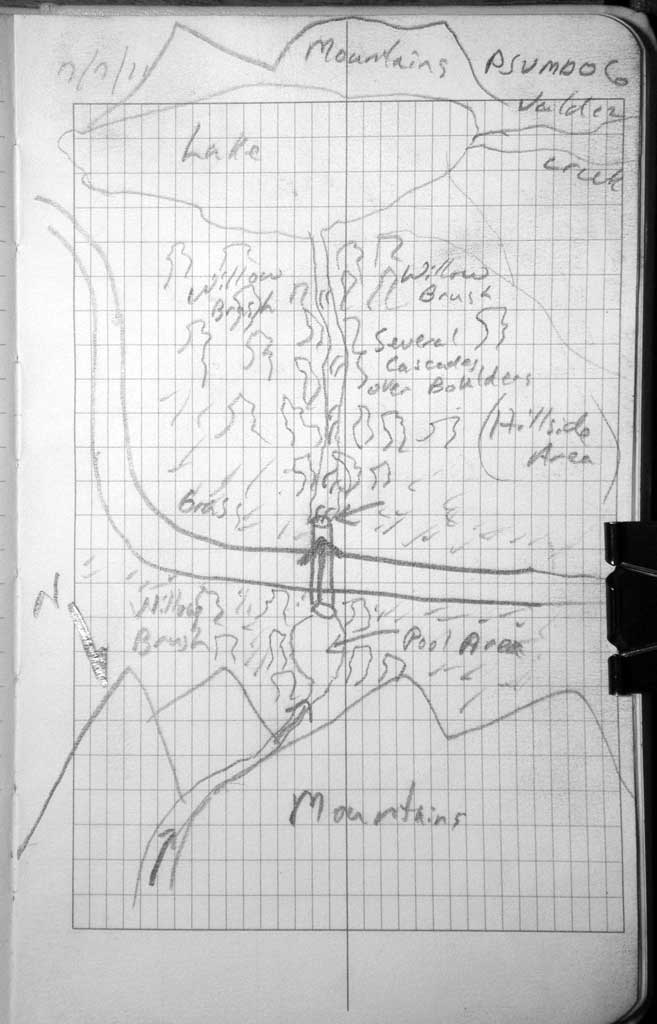 Mountains
PSVMDOCo
Valdez
Creek
Lake
Willow
Brush
Willow
Brush
Several
Cascades
over Boulders
(Hillside
Area)
Grass
N
Willow
Brush
Pool Area
Mountains